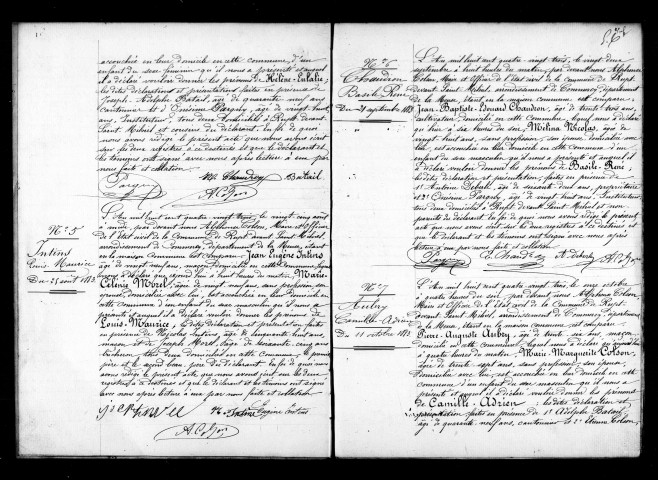 accouchée en leur domicile en cette commune, d'un
enfant du sexe féminin qu'il nous a présenté et auquel
il a déclaré vouloir donner les prénoms de Hélène-Eulalie;
les dites déclaration et présentation faites en présence de
Joseph Adolphe Batail, âgé de quarante neuf ans
Cantonnier et d' Onésime Pargny, âgé de vingt huit
ans, Instituteur, tous deux domiciliés à Rupt devant
Saint Mihiel et ont
nous avons rédigé le présent acte que nous avons écrit
sur les deux registres à ce destinés et que le déclarant et
les témoins ont signé avec nous après lecture à eux par
nous faite et collation
Pargny Chaudron Batail
A Colson
N° 5
Intins
Louis Maurice
Du 25 août 1883
L'An mil huit cent quatre vingt trois, le vingt cinq août
à midi, par devant nous Alphonse Colson, Maire et Officier
de l'état civil de la Commune de Rupt devant Saint Mihiel,
arrondissement de Commercy, département de la Meuse, étant
en la maison commune est comparu Jean Eugène Intins
âgé de vingt neuf ans, domicilié en cette Commune, lequel
Marie
Célinie Morel, âgée de vingt neuf ans, sans profession, son
épouse, domiciliée avec lui, est accouchée en leur domicile en
cette commune d'un enfant du sexe masculin qu'il nous a
présenté et auquel il a déclaré vouloir donner les prénoms de
Louis-Maurice; les dites déclaration et présentation faites
en présence de Nicolas Intins, âgé de cinquante huit ans,
maçon et de Joseph Morel, âgé de soixante cinq ans
tous deux domiciliés en cette commune, le premier
père et le second beau père du déclarant. En foi de quoi nous
avons rédigé le présent acte que nous avons écrit sur les deux
registres à ce destinés et que le déclarant et les témoins ont signé
avec nous après lecture à eux par nous faite et collation
Intins Eugène Intins
A Colson
N° 6
Chaudron
Basile René
Du septembre 1883
L'An mil huit cent quatre vingt trois, le vingt deux
septembre à huit heures du matin, par devant nous Alphonse
Colson, Maire et Officier de l'état civil de la commune de Rupt
devant Saint Mihiel, arrondissement de Commercy, département
de la Meuse, étant en la maison commune est comparu
Jean Baptiste Edouard Chaudron, âgé de trente trois ans,
cultivateur, domicilié en cette Commune, lequel nous a déclaré
qu'hier à six heures du soir, Mélina Nicolas, âgée de
vingt huit ans, sans profession, son épouse, domiciliée avec
lui, est accouchée en leur domicile en cette commune d'un
enfant du sexe masculin qu'il nous a présenté et auquel il
a déclaré vouloir donner les prénoms de Basile-René;
les dites déclaration et présentation, faites en présence de
1° Antoine, âgé de soixante deux ans, propriétaire
et 2° Onésime Pargny, âgé de vingt huit ans, Instituteur
tous deux domiciliés à Rupt devant Saint Mihiel et non
parents du déclarant. En foi de quoi nous avons rédigé le présent
acte que nous avons écrit sur les deux registres à ce destinés et
que le déclarant et les témoins ont signé avec nous après
lecture à eux par nous faite et collation
Pargny E. Chaudron A Colson
N° 7
Aubry
Camille Adrien
Du 11 octobre 1883
L'An mil huit cent quatre vingt trois, le onze octobre
à quatre heures du soir, par devant nous Alphonse Colson
Maire et Officier de l'état civil de la Commune de Rupt
devant Saint Mihiel, arrondissement de Commercy, département
de la Meuse, étant en la maison commune est comparu
Pierre Auguste Aubry, âgé de trente six ans, maçon
domicilié en cette commune, lequel nous a déclaré
à quatre heures du matin, Marie Marguerite Colson,
âgée de trente sept ans, sans profession, son épouse
domiciliée avec lui, est accouchée en leur domicile en cette
commune d'un enfant du sexe masculin qu'il nous a
présenté et auquel il a déclaré vouloir donner les prénoms
de Camille-Adrien; les dites déclaration et
présentation faites en présence de 1° Adolphe Batail,
âgé de quarante neuf ans, cantonnier et 2° Colson,